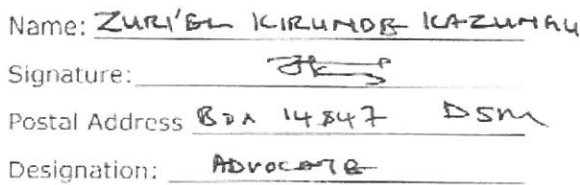 Name: ZURI'EL KIRUNDE KAZUNGU
Signature:
Postal Address BOX 14847 DSM
Designation: ADVOCATE